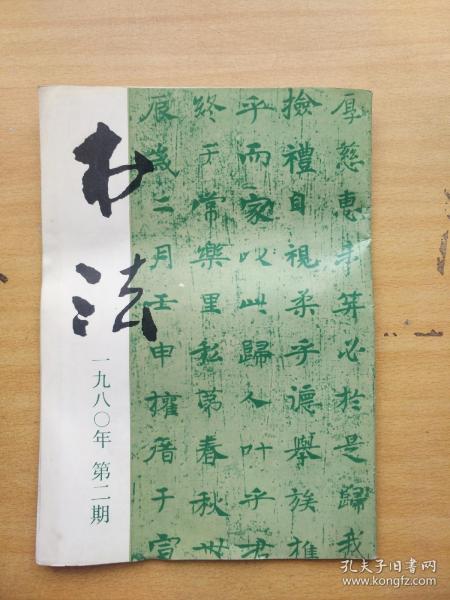 书法
一九八〇年 第二期
厚慈惠来算必於是歸我
撿禮自視柔乎德舉族推
乎而家以此歸人叶乎君
終于常樂里私第春秋卌
辰歲二月壬申擁厝于宣
孔夫子旧书网
www.kongfz.com